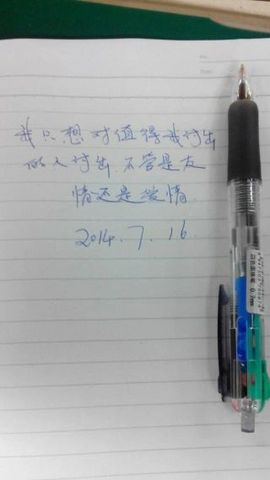 我只想对值得我付出
的人付出 不管是友
情还是爱情.
2014.7.16
0.7mm